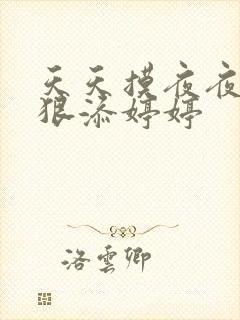 天天摸夜夜
狠添婷婷
洛雲卿